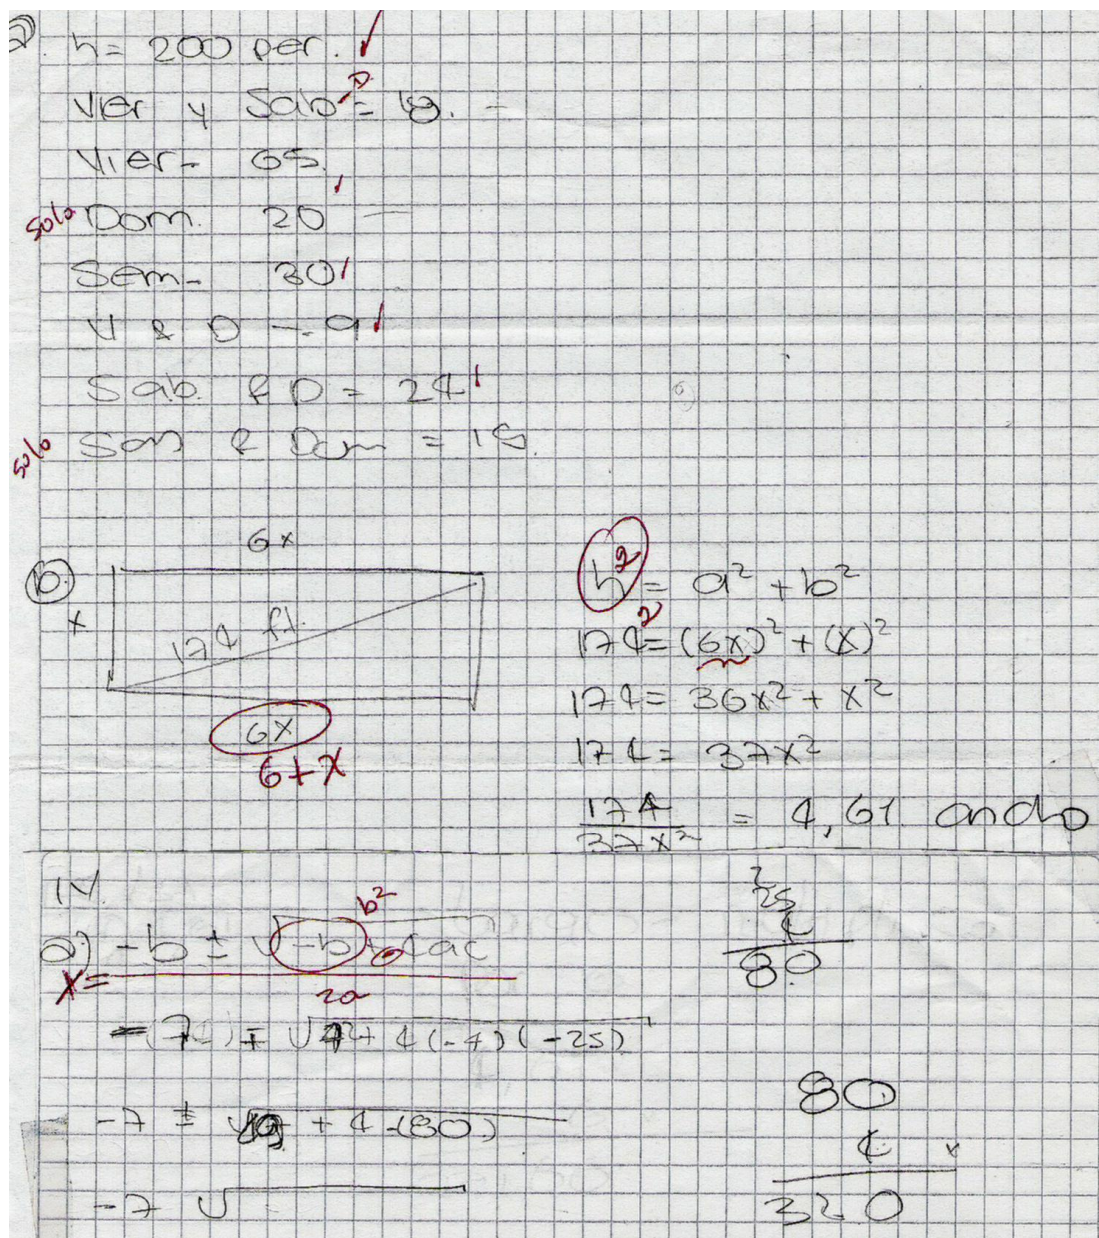 a)
n = 200 per.
Vier y Sab = 18.
Vier - 65.
solo Dom. 20
Sem - 30
V & D - 9
Sab. & D = 24
solo & Dom = 15.
6x
b.
x
174 ft.
6x
6+x
h² = a² + b²
174² = (6x)² + (x)²
174 = 36x² + x²
174 = 37x²
174 / 37x² = 4,61 ancho
IV
a) x = -b ± √-b 4ac b²
2a
-(7) ± √7² + 4(-4)(-25)
-7 ± √ + 4 (80)
-7 √
2
25
4
80
80
4 x
320